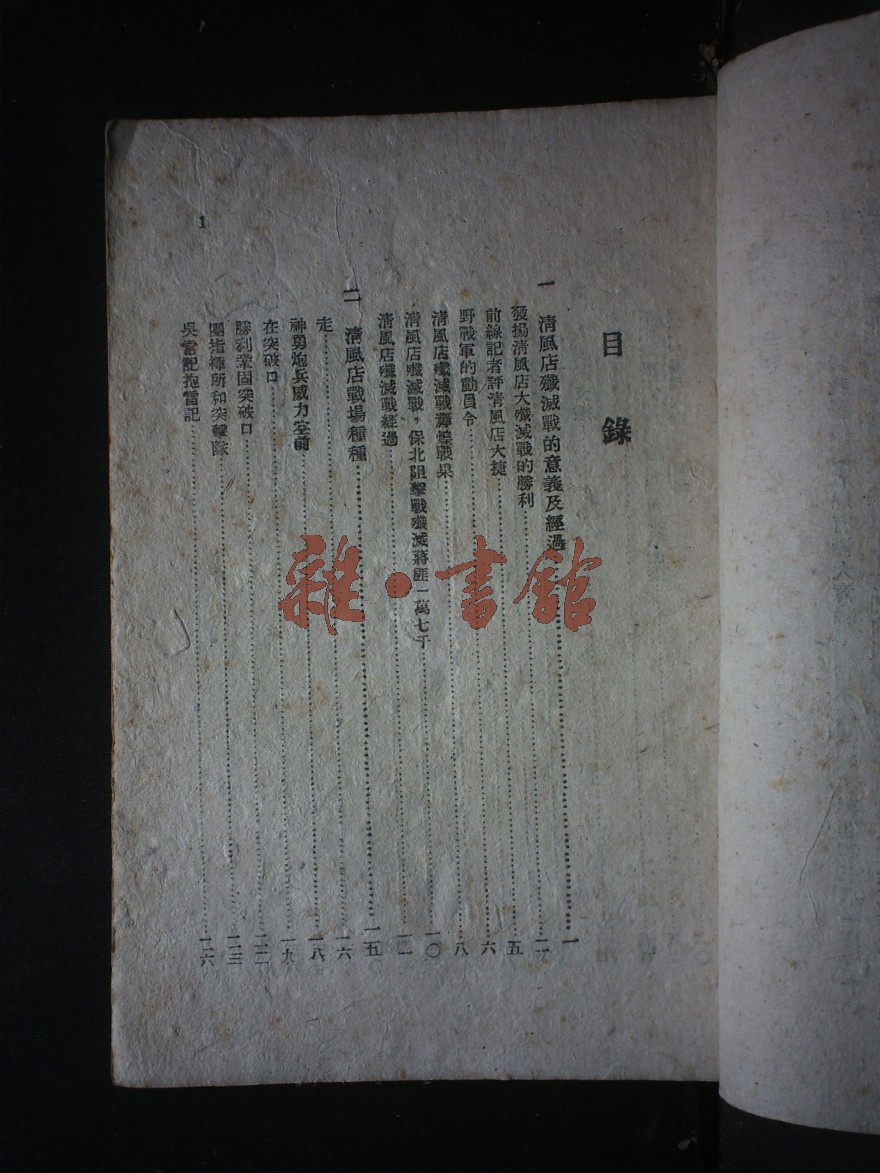 目錄
一 清風店殲滅戰的意義及經過……一
發揚清風店大殲滅戰的勝利……二
前線記者評清風店大捷……五
野戰軍的動員令……六
清風店殲滅戰輝煌戰果……八
清風店殲滅戰，保北阻擊戰殲滅蔣匪一萬七千……一〇
清風店殲滅戰經過……一一
二 清風店戰場種種……一五
走……一六
神勇炮兵威力空前……一八
在突破口……一九
勝利鞏固突破口……二二
團指揮所和突擊隊……二三
……二六
1
雜·書館